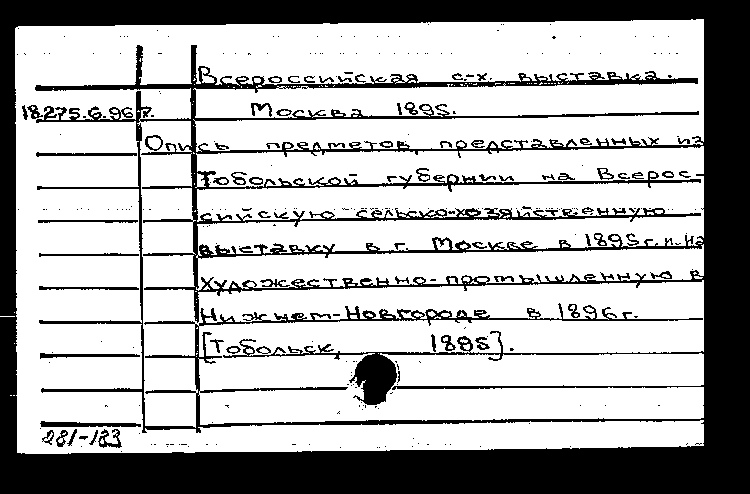 Всероссийская с-х. выставка.
18.275.6.96г. Москва 1895.
Опись предметов, представленных из
Тобольской губернии на Всерос-
сийскую сельско-хозяйственную
выставку в г. Москве в 1895 г. и на
художественно-промышленную в
Нижнем-Новгороде в 1896 г.
[Тобольск, 1895].
281-183